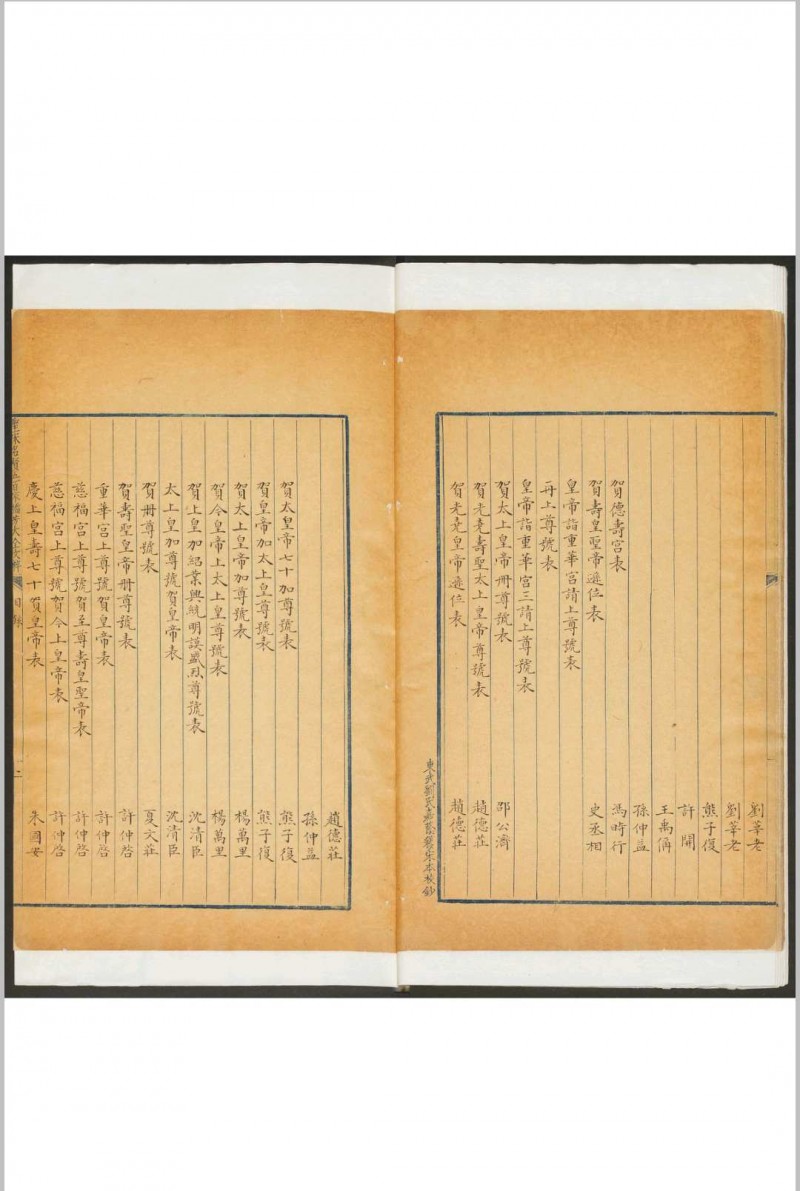 劉莘老
劉莘老
熊子復
許開
王禹偁
孫仲益
賀德壽宮表 馮時行
賀壽皇聖帝遜位表 史丞相
皇帝詣重華宮請上尊號表
再上尊號表
皇帝詣重華宮三請上尊號表
賀太上皇帝冊尊號表 邵公濟
賀光堯壽聖太上皇帝尊號表 趙德莊
賀光堯皇帝遜位表 趙德莊
東武劉氏嘉蔭簃宋本校鈔
趙德莊
孫仲益
賀太皇帝七十加尊號表 熊子復
賀皇帝加太上皇尊號表 熊子復
賀太上皇帝加尊號表 楊萬里
賀今皇帝上太上皇尊號表 楊萬里
賀上皇加紹業興統明謨盛烈尊號表 沈清臣
太上皇加尊號賀皇帝表 沈清臣
賀冊尊號表 夏文莊
賀壽聖皇帝冊尊號表 許仲啓
重華宮上尊號賀皇帝表 許仲啓
慈福宮上尊號賀至尊壽皇聖帝表 許仲啓
慈福宮上尊號賀今上皇帝表 許仲啓
慶上皇壽七十賀皇帝表 朱國安
目錄